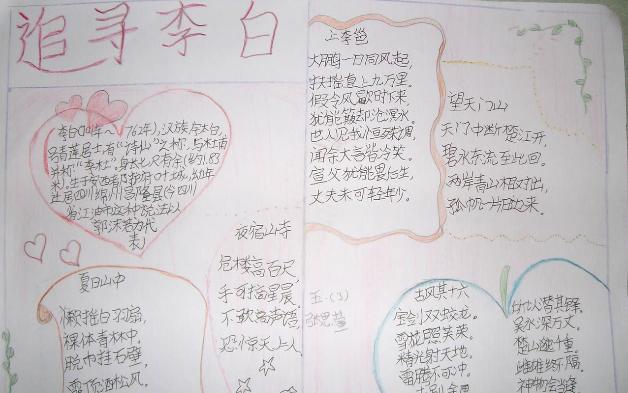 追寻李白
李白(701年～762年),汉族,字太白,
号青莲居士,有"诗仙"之称,与杜甫
并称"李杜",身长七尺有余(约1.83
米),生于安西都护府叶城,幼年
迁居四川绵州昌隆县今四川
省江油市这种说法以
郭沫若为代
表
夏日山中
懒摇白羽扇,
裸体青林中,
脱巾挂石壁,
露顶洒松风。
夜宿山寺
危楼高百尺,
手可摘星晨。
不敢高声语,
恐惊天上人
上李邕
大鹏一日同风起,
扶摇直上九万里。
假令风歇时下来,
犹能簸却沧溟水。
世人见我恒殊调,
闻余大言皆冷笑。
宣父犹能畏后生,
丈夫未可轻年少。
望天门山
天门中断楚江开,
碧水东流至此回。
两岸青山相对出,
孤帆一片日边来。
五·(3)
古风其十六
宝剑双蛟龙。
雪花照芙蓉。
精光射天地。
雷腾不可冲。
吴水深万丈。
楚山邈千重。
雌雄终不隔。
神物会当逢